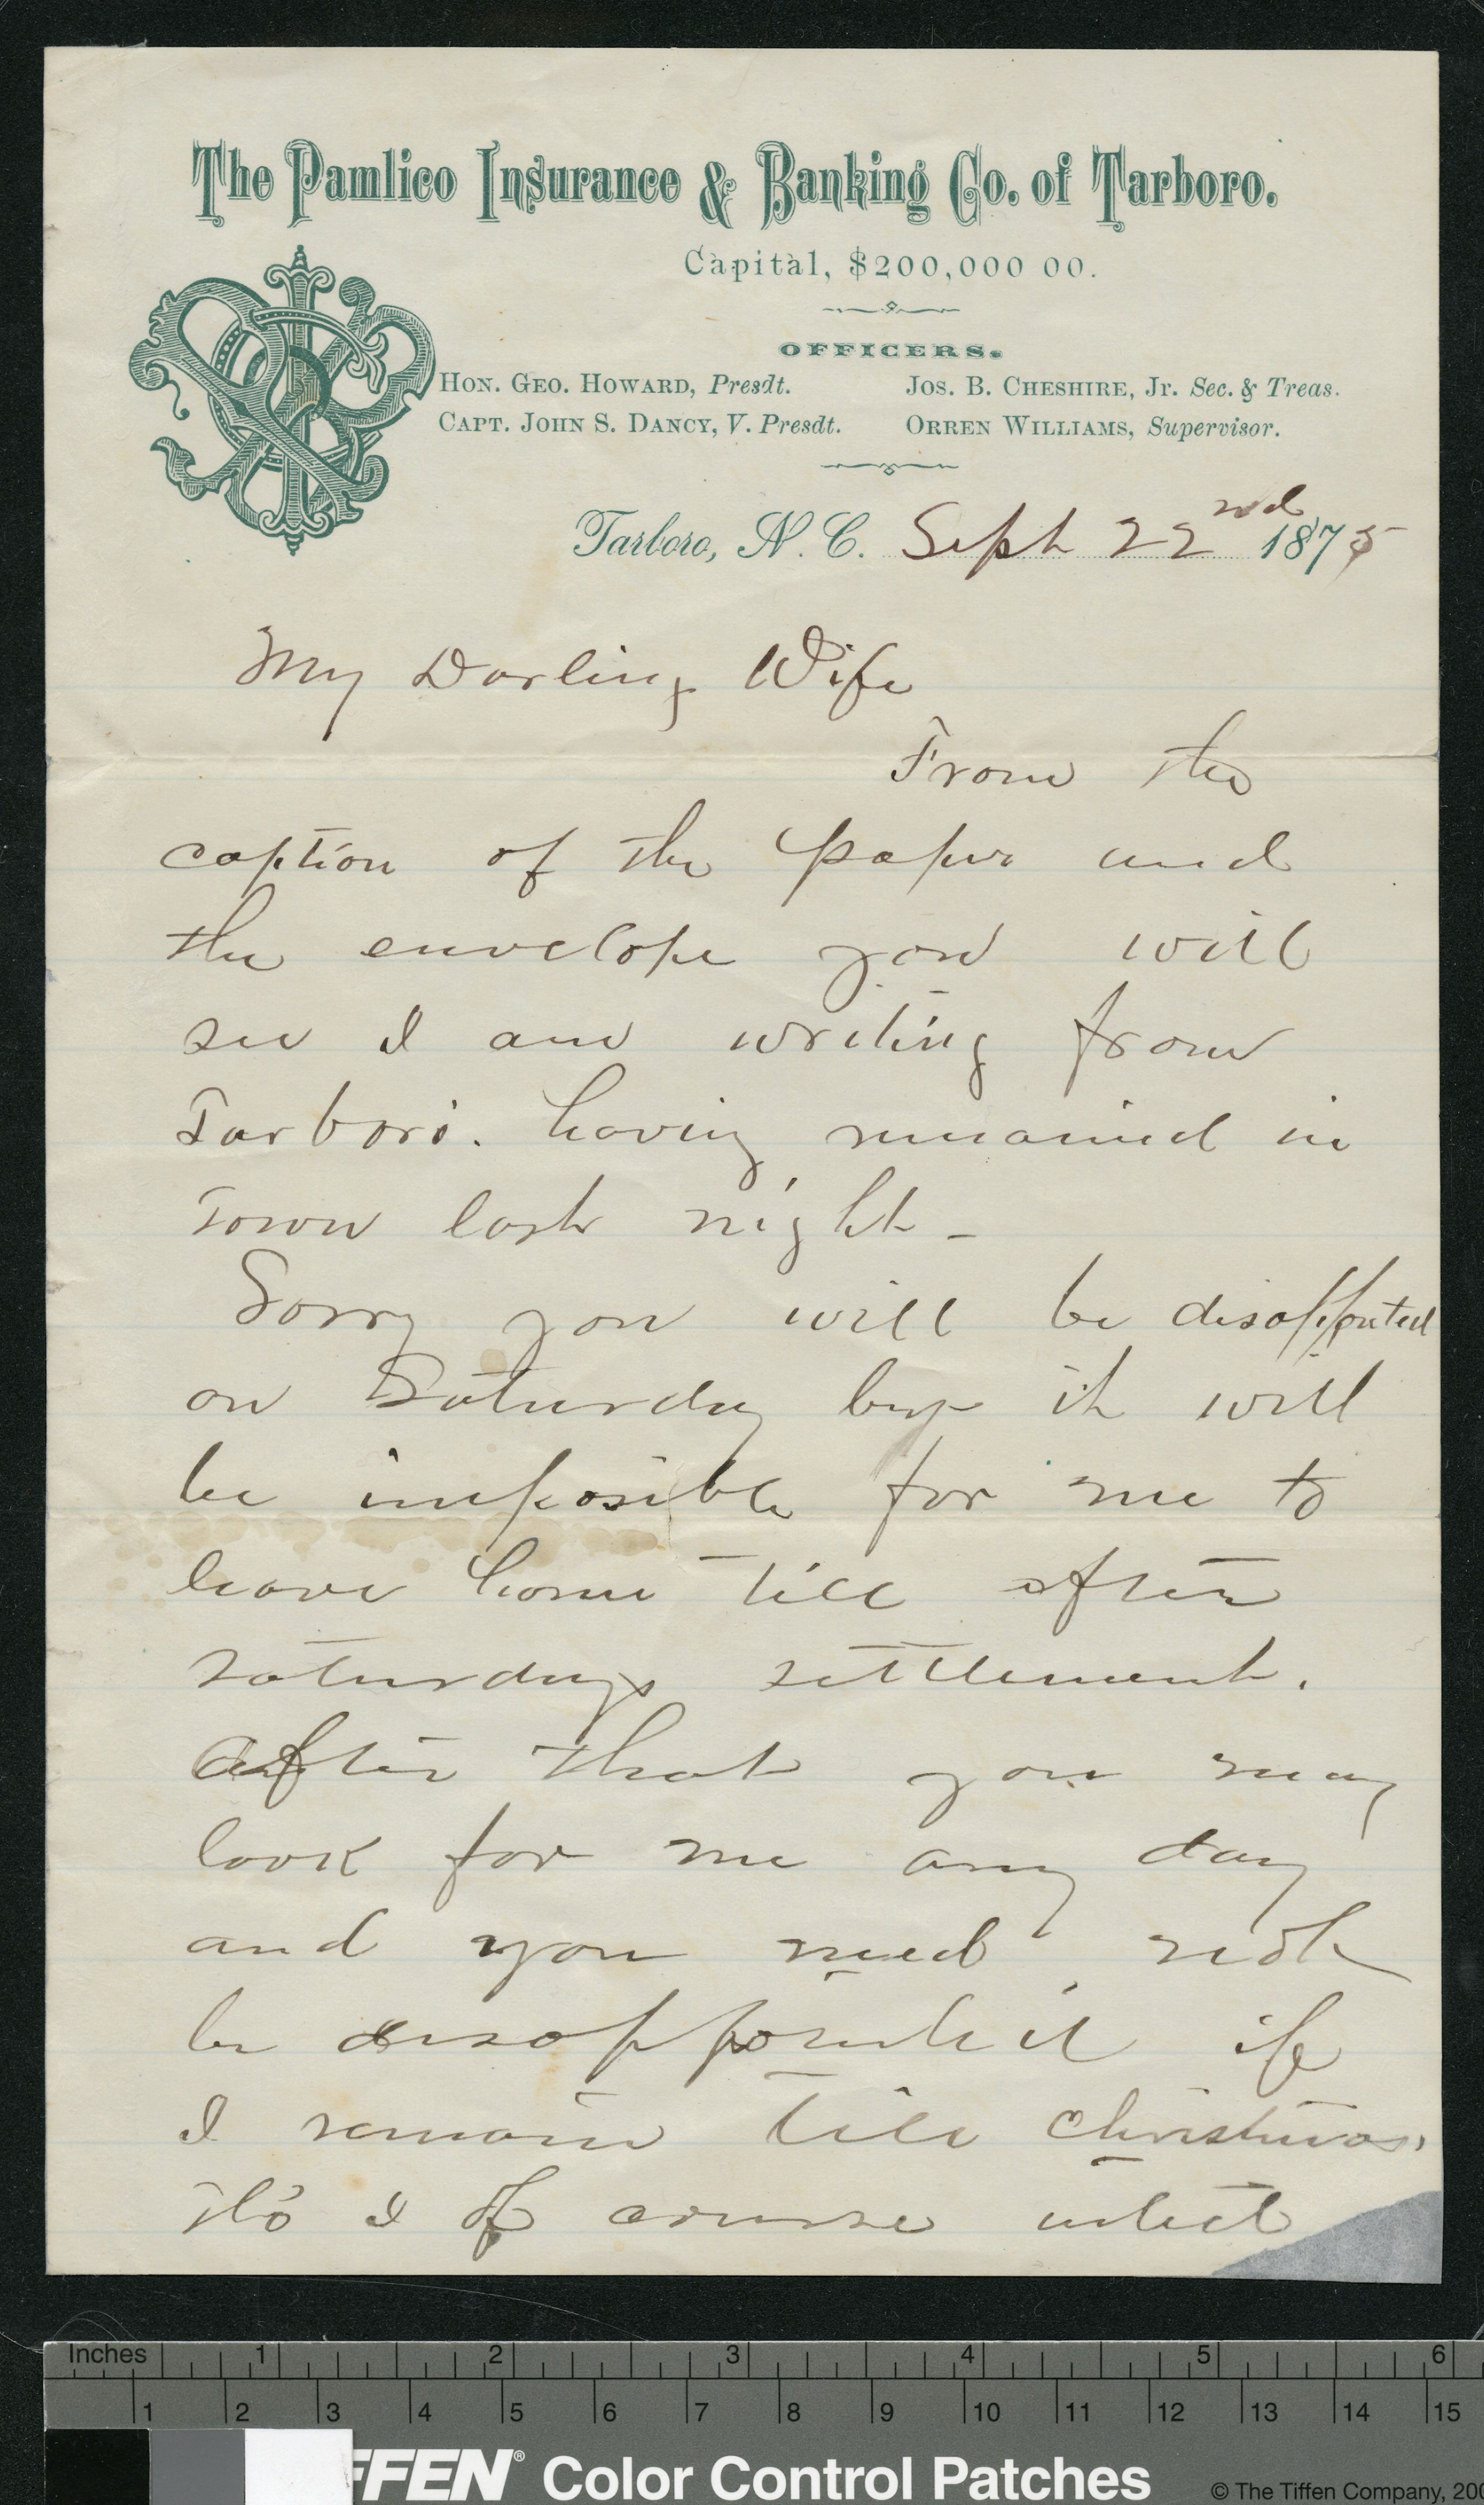 The Pamlico Insurance & Banking Co. of Tarboro.
Capital, $200,000 00.
OFFICERS.
HON. GEO. HOWARD, Presdt. JOS. B. CHESHIRE, Jr. Sec. & Treas.
CAPT. JOHN S. DANCY, V. Presdt. ORREN WILLIAMS, Supervisor.
Tarboro, N. C. Sept 22nd 1875
My Darling Wife
From the
caption of the paper and
the envelope you will
see I am writing from
Tarboro. having remained in
Town last night -
Sorry you will be disappointed
on Saturday but it will
be imposible for me to
leave home till after
saturdays settlement.
After that you may
look for me any day
and you need not
be disappointed if
I remain till Christmas.
tho I of course
Inches 1 2 3 4 5 6
1 2 3 4 5 6 7 8 9 10 11 12 13 14 15
FFEN® Color Control Patches © The Tiffen Company, 200